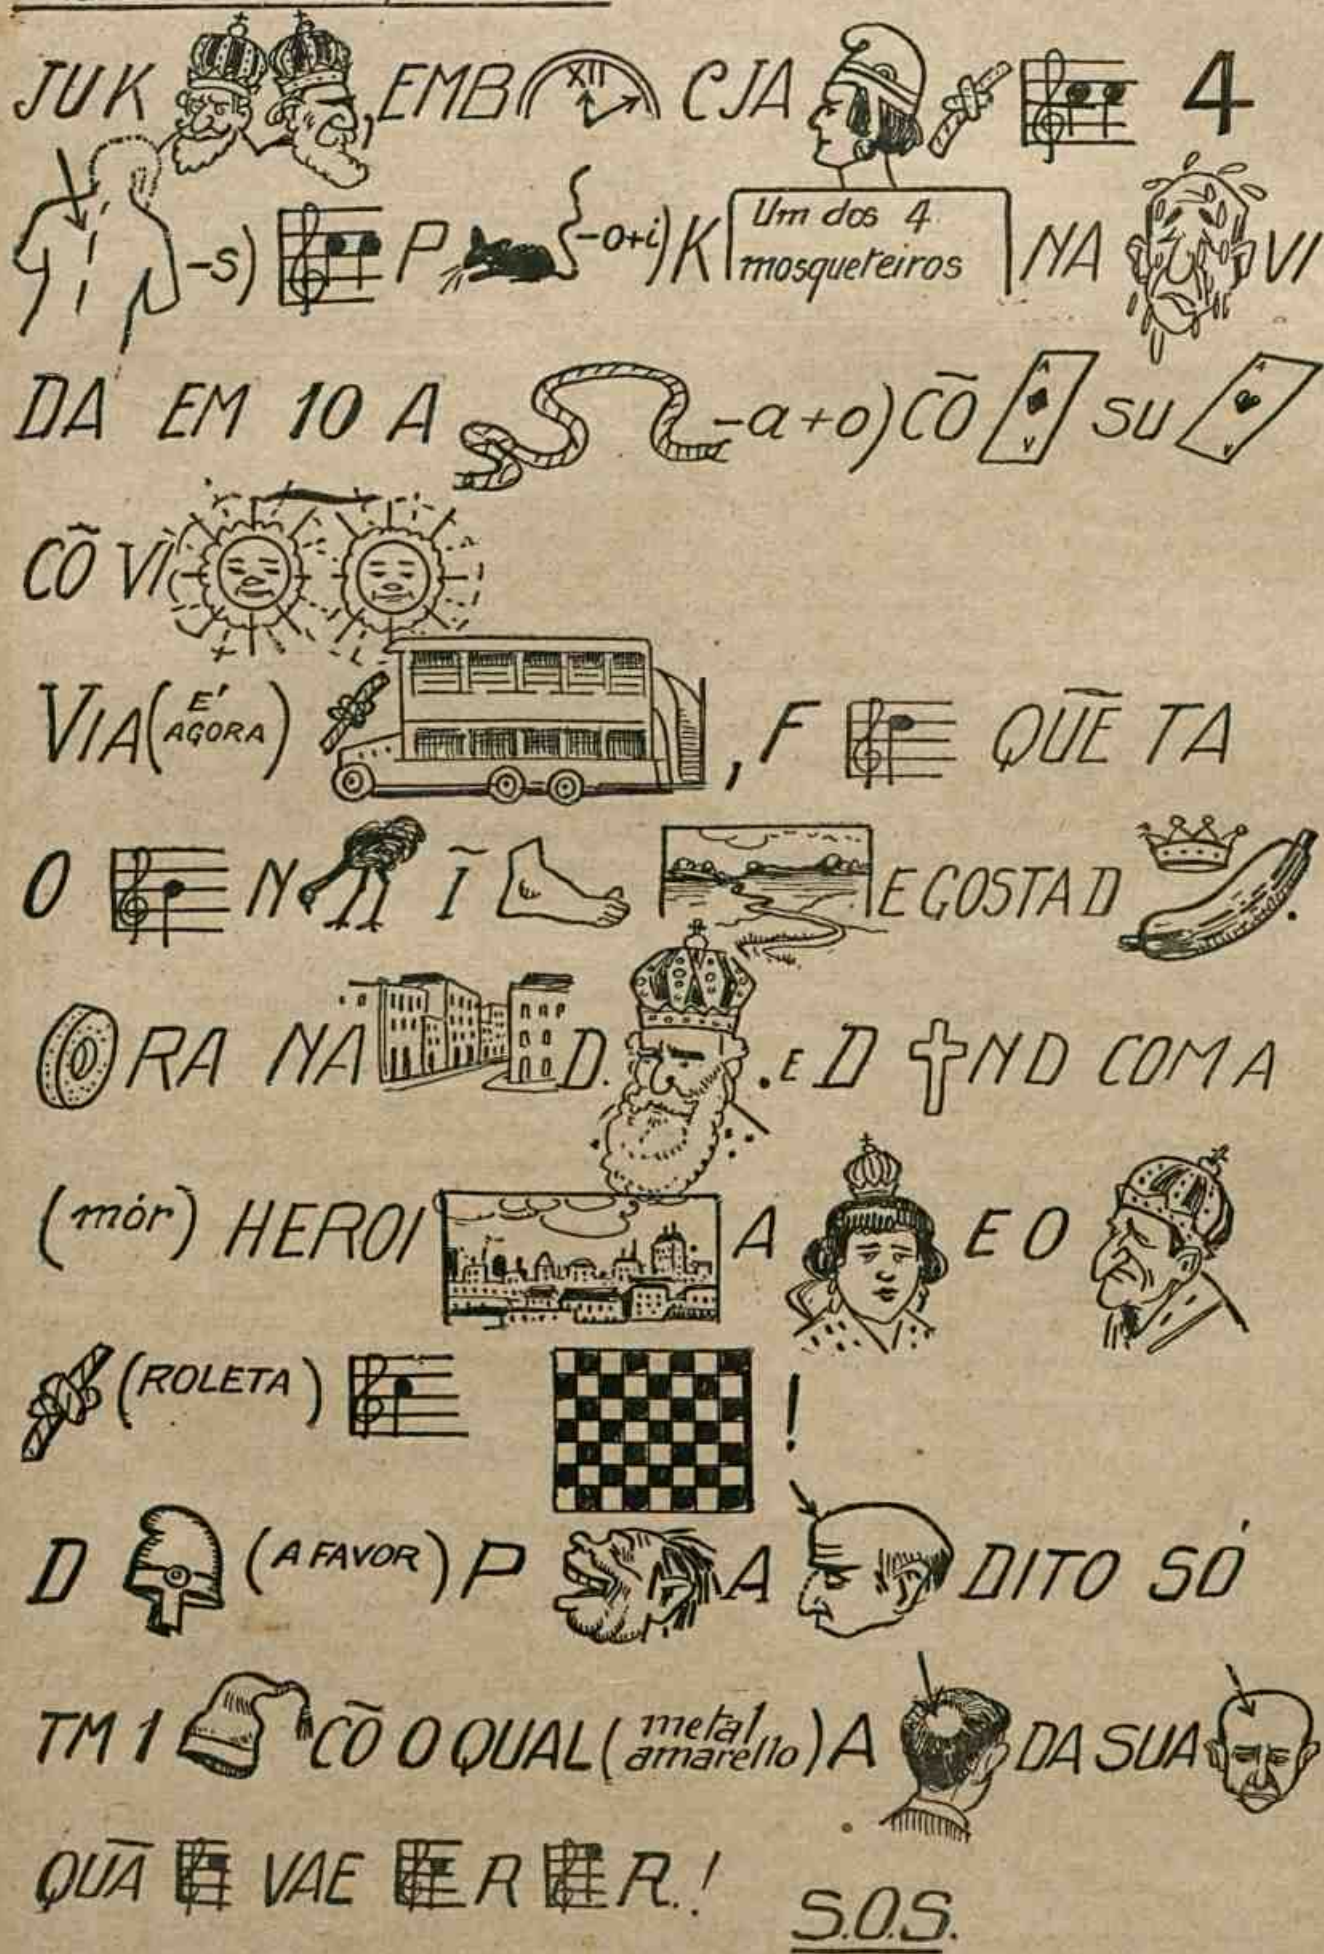 JUK , EMB XII CJA 4
-s) P -o+i) K Um dos 4 mosqueteiros NA VI
DA EM 10 A -a+o) CÕ A A SU A A
CÕ VI
VIA (E' AGORA) , F QUẼ TA
O N Ĩ E GOSTA D .
RA NA D. . E D ND COM A
(mór) HEROI A E O
(ROLETA) !
D (A FAVOR) P A DITO SÓ
TM 1 CÕ O QUAL (metal amarello) A DA SUA
QUÃ VAE R R.!
S.O.S.